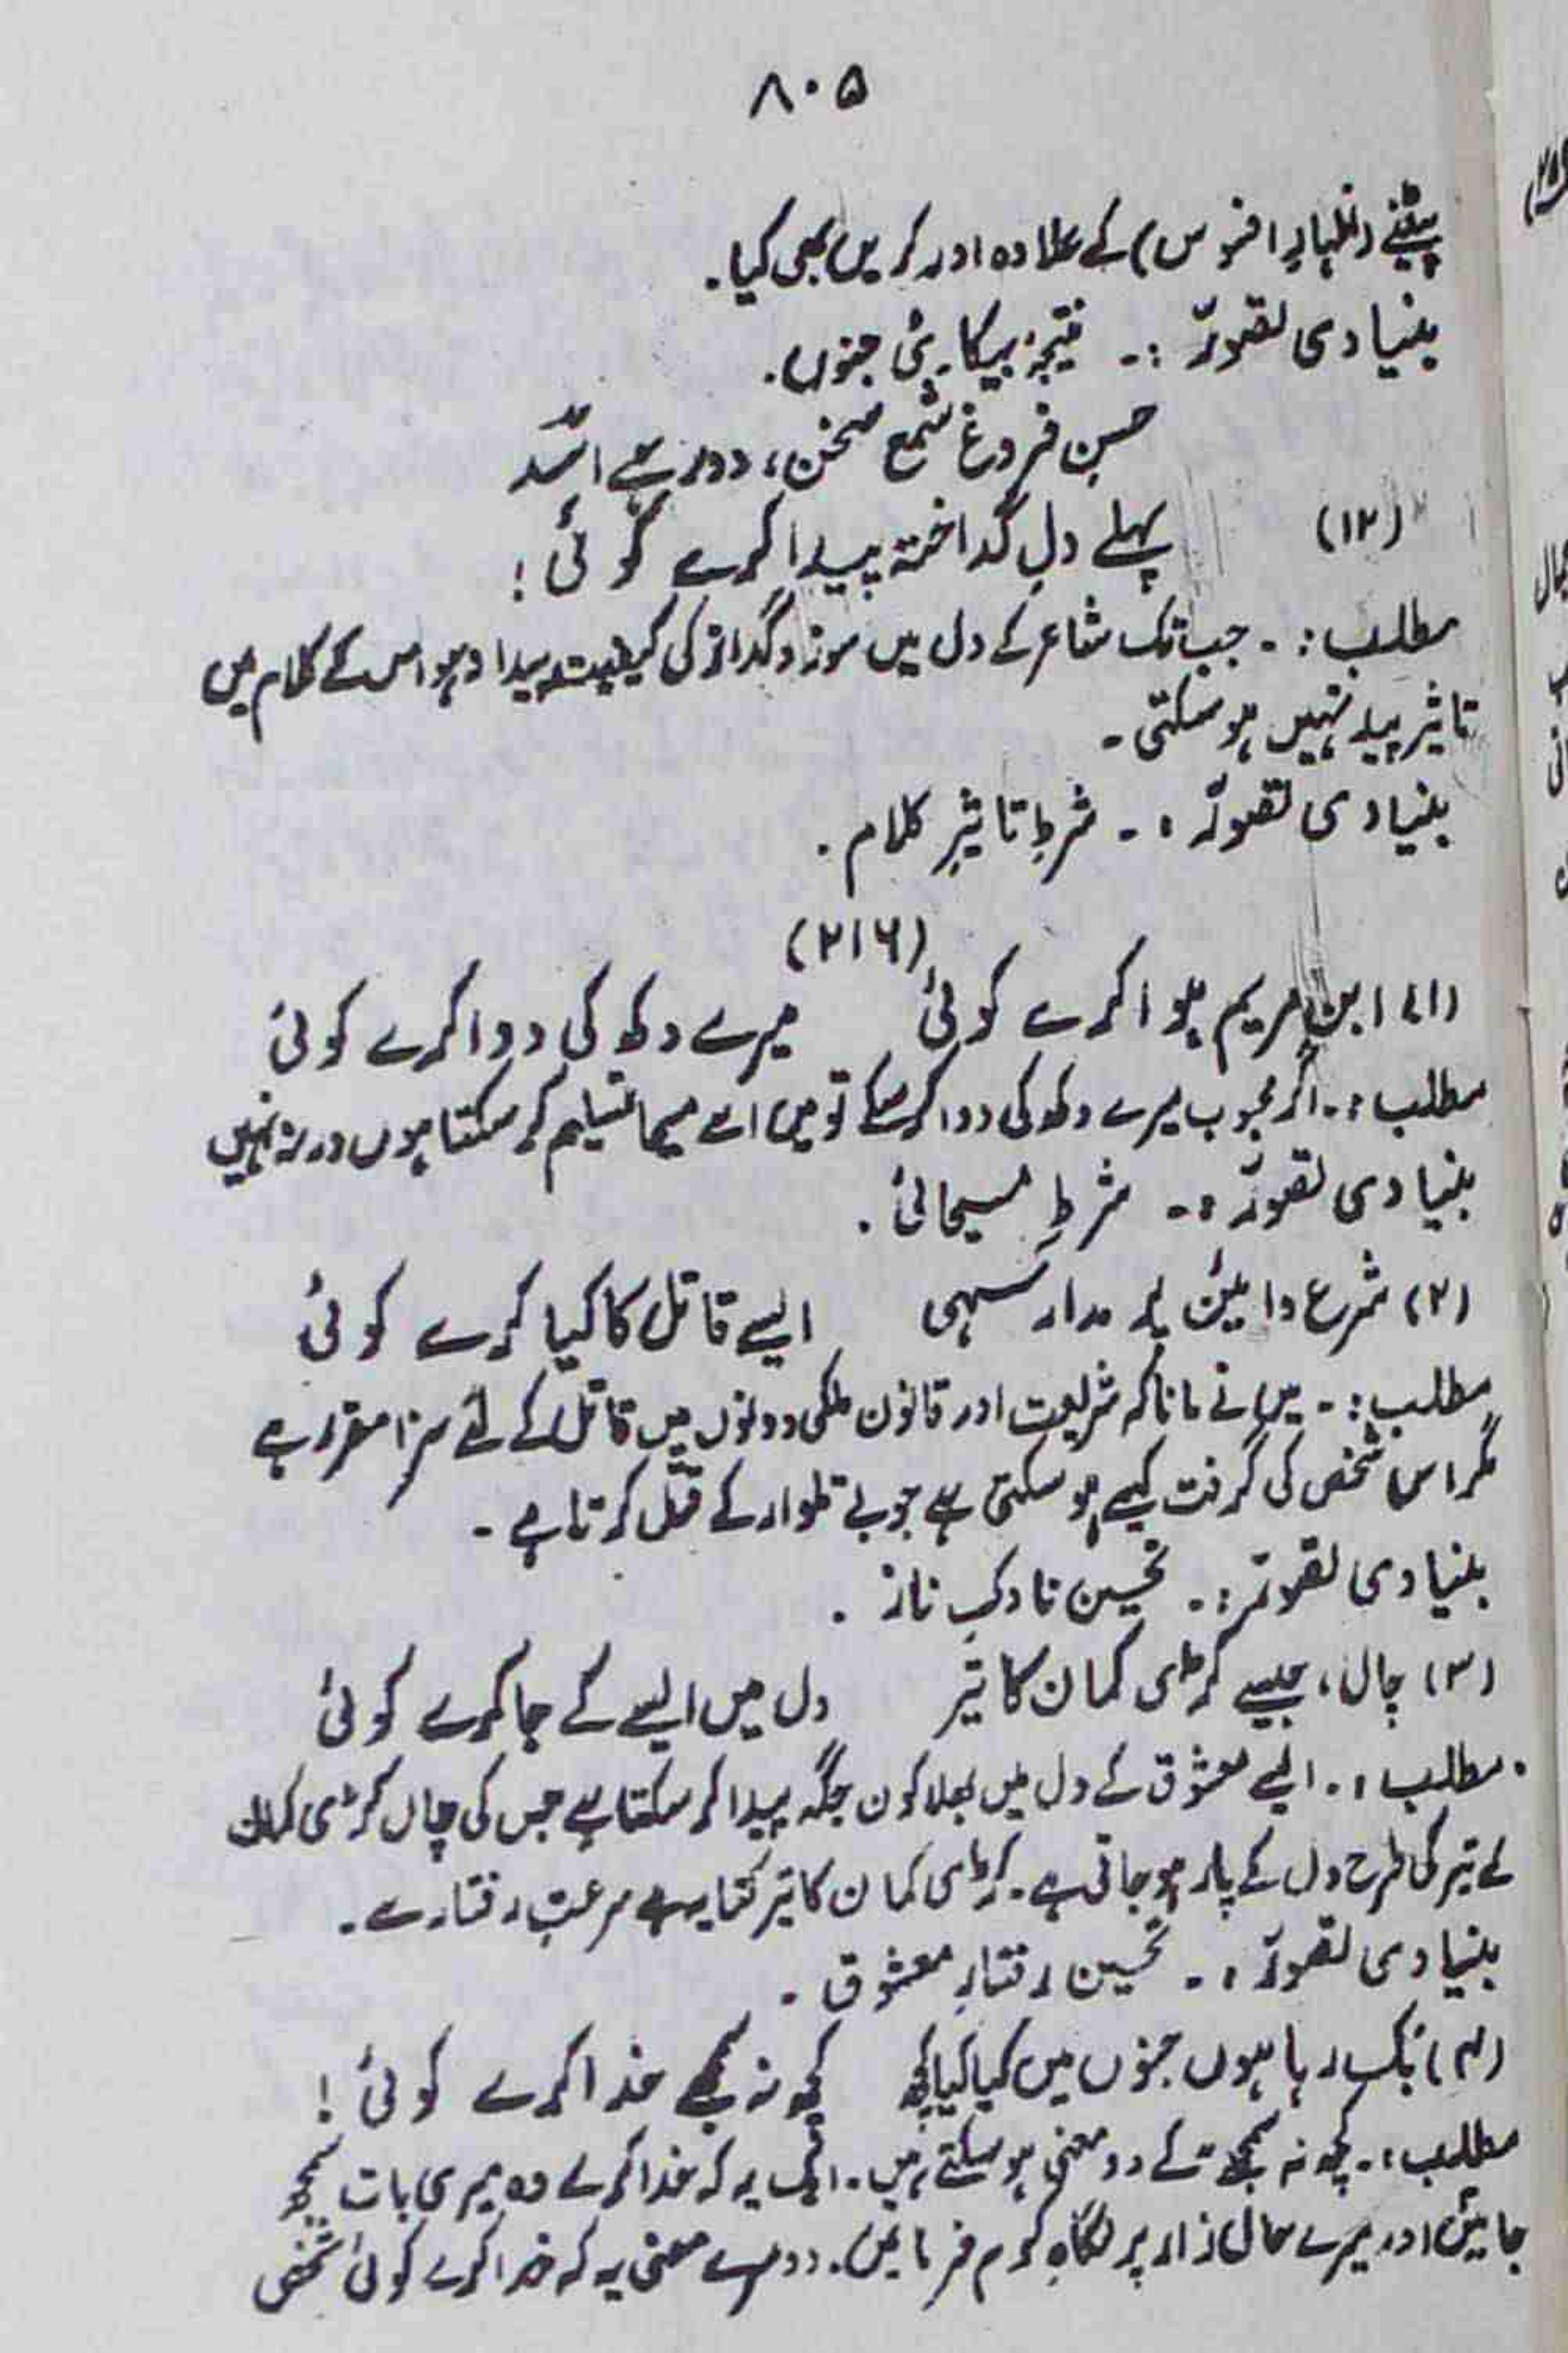 ۸۰۵
پیٹنے (اظہارِ افسوس) کے علاوہ اور کر ہیں بھی کیا۔
بنیادی تصوّر :۔ نتیجۂ بیکاریٔ جنوں۔
حسنِ فروغِ شمعِ سخن، دور ہے اسدؔ
(۱۲) پہلے دلِ گداختہ پیدا کرے کوئی!
مطلب :۔ جب تک شاعر کے دل میں سوز و گداز کی کیفیت پیدا نہ ہو اس کے کلام میں
تاثیر پیدا نہیں ہو سکتی۔
بنیادی تصوّر :۔ شرطِ تاثیرِ کلام۔
(۲۱۶)
(۱) ابنِ مریم ہوا کرے کوئی میرے دکھ کی دوا کرے کوئی
مطلب :۔ اگر محبوب میرے دکھ کی دوا کر سکے تو میں اسے مسیحا تسلیم کر سکتا ہوں ورنہ نہیں
بنیادی تصوّر :۔ شرطِ مسیحائی۔
(۲) شرع و آئین پر مدار سہی ایسے قاتل کا کیا کرے کوئی
مطلب :۔ میں نے مانا کہ شریعت اور قانون ملکی دونوں میں قاتل کے لئے سزا مقرر ہے
مگر اس شخص کی گرفت کیسے ہو سکتی ہے جو بے تلوار کے قتل کرتا ہے۔
بنیادی تصوّر :۔ تحسین ناوکِ ناز۔
(۳) چال، جیسے کڑی کمان کا تیر دل میں ایسے کے جا کرے کوئی
مطلب :۔ ایسے معشوق کے دل میں بھلا کون جگہ پیدا کر سکتا ہے جس کی چال کڑی کمان
کے تیر کی طرح دل کے پار ہو جاتی ہے۔ کڑی کمان کا تیر کنایہ ہے سرعتِ رفتار سے۔
بنیادی تصوّر :۔ تحسین رفتارِ معشوق۔
(۴) بک رہا ہوں جنوں میں کیا کیا کچھ کچھ نہ سمجھے خدا کرے کوئی!
مطلب :۔ کچھ نہ سمجھے کے دو معنی ہو سکتے ہیں۔ ایک یہ کہ خدا کرے وہ میری بات سمجھ
جائیں اور میرے حال زار پر نگاہِ کرم فرمائیں۔ دوسرے معنی یہ کہ خدا کرے کوئی شخص